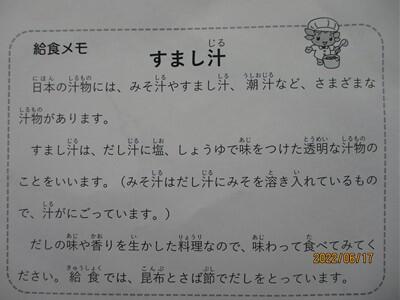 給食メモ
すまし汁
日本の汁物には、みそ汁やすまし汁、潮汁など、さまざまな
汁物があります。
すまし汁は、だし汁に塩、しょうゆで味をつけた透明な汁物の
ことをいいます。（みそ汁はだし汁にみそを溶き入れているもの
で、汁がにごっています。）
だしの味や香りを生かした料理なので、味わって食べてみてく
ださい。給食では、昆布とさば節でだしをとっています。
2022/06/17